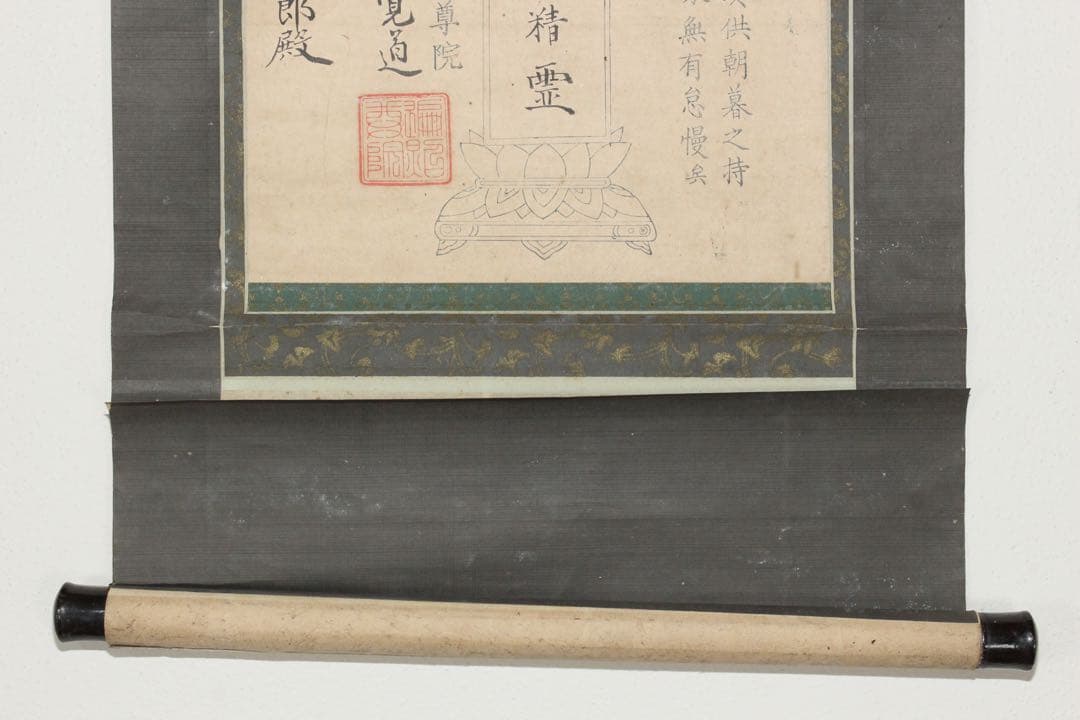 供朝暮之持
無有怠慢矣
精霊
尊院
覚道
郎殿